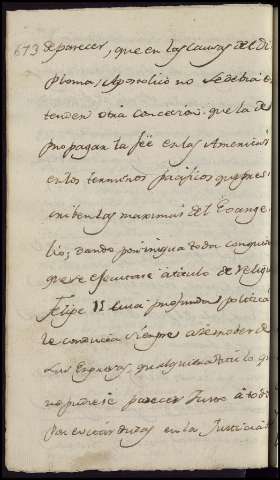 673 de parecer, que en las causas del Di
ploma, Apostolico no se debia en
tender otra concecion que la de
propagar la feé en las Americas
en los terminos pacificos que pres
criben las maximas del Evange
lio; dando por iniqua toda conquis
que se efectuase á titulo de religio
Felipe II cuia profunda politica
le conducia siempre a remober de
sus Empresas, qualquiera titulo q
no pudiese parecer Justo á todo
por evitar dudas en la Justicia